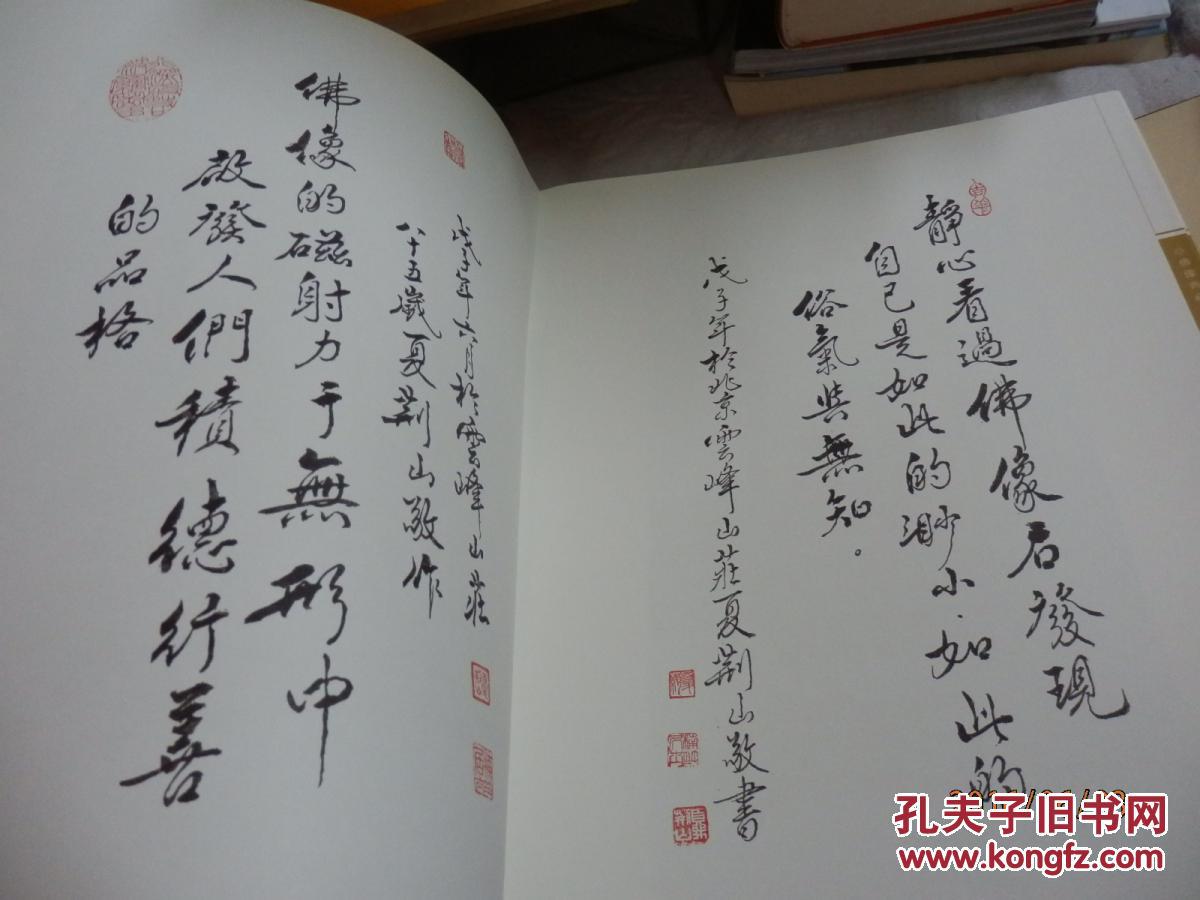 靜心看過佛像后發現
自己是如此的渺小·如此的
俗氣與無知。
戊子年於北京雲峰山莊夏荆山敬書
佛像的磁射力于無形中
啟發人們積德行善
的品格
戊子年六月於雲峰山莊
八十五歲夏荆山敬作
孔夫子旧书网
www.kongfz.com